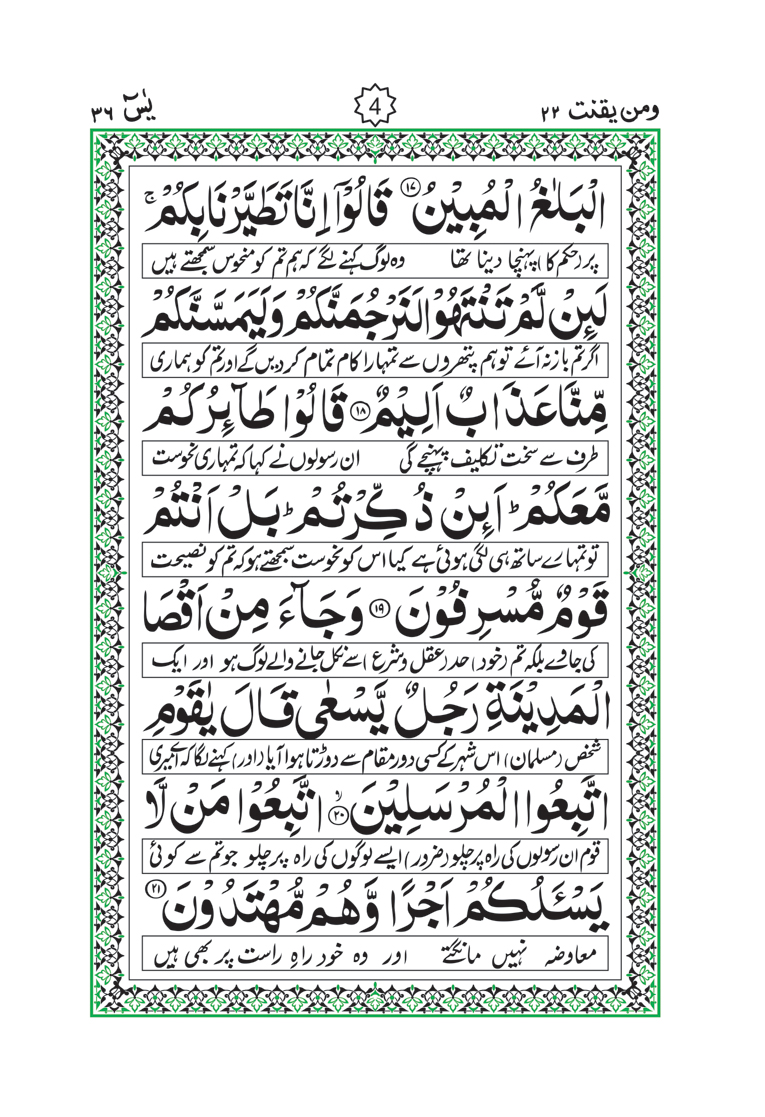 ومن يقنت ۲۲
4
يٰسٓ ۳۶
الْبَلٰغُ الْمُبِيْنُ ⁠۝۱۷ قَالُوْۤا اِنَّا تَطَيَّرْنَا بِكُمْ ۚ
پر (حکم کا) پہنچا دینا تھا وہ لوگ کہنے لگے کہ ہم تم کو منحوس سمجھتے ہیں
لَىِٕنْ لَّمْ تَنْتَهُوْا لَنَرْجُمَنَّكُمْ وَلَيَمَسَّنَّكُمْ
اگر تم باز نہ آئے تو ہم پتھروں سے تمہارا کام تمام کر دیں گے اور تم کو ہماری
مِّنَّا عَذَابٌ اَلِيْمٌ ۝۱۸ قَالُوْا طَآىِٕرُكُمْ
طرف سے سخت تکلیف پہنچے گی ان رسولوں نے کہا کہ تمہاری نحوست
مَّعَكُمْ ؕ اَىِٕنْ ذُكِّرْتُمْ ؕ بَلْ اَنْتُمْ
تو تمہارے ساتھ ہی لگی ہوئی ہے کیا اس کو نحوست سمجھتے ہو کہ تم کو نصیحت
قَوْمٌ مُّسْرِفُوْنَ ۝۱۹ وَجَآءَ مِنْ اَقْصَا
کی جاوے بلکہ تم (خود) حد (عقل و شرع) سے نکل جانے والے لوگ ہو اور ایک
الْمَدِيْنَةِ رَجُلٌ يَّسْعٰى قَالَ يٰقَوْمِ
شخص (مسلمان) اس شہر کے کسی دور مقام سے دوڑتا ہوا آیا (اور) کہنے لگا کہ اے میری
اتَّبِعُوا الْمُرْسَلِيْنَ ۝۲۰ۙ اتَّبِعُوْا مَنْ لَّا
قوم ان رسولوں کی راہ پر چلو (ضرور) ایسے لوگوں کی راہ پر چلو جو تم سے کوئی
يَسْـَٔلُكُمْ اَجْرًا وَّهُمْ مُّهْتَدُوْنَ ۝۲۱
معاوضہ نہیں مانگتے اور وہ خود راہِ راست پر بھی ہیں